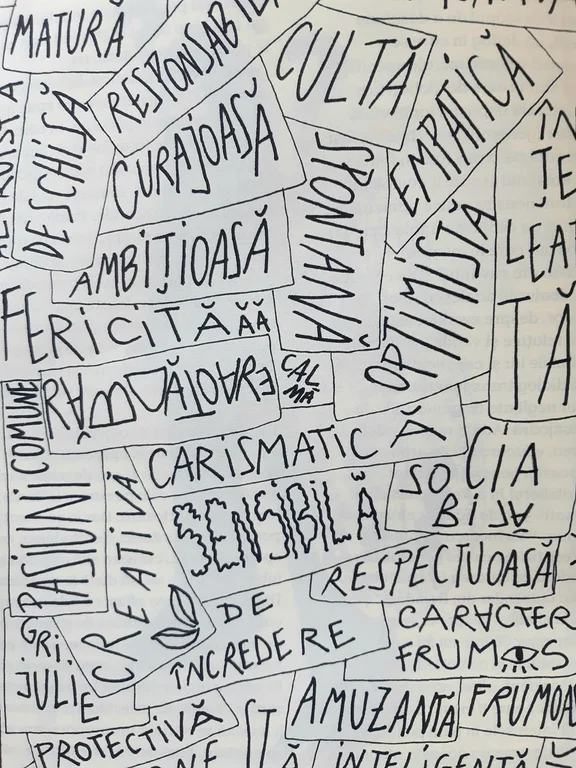 MATURĂ
RESPONSABIL
CULTĂ
EMPATICĂ
DESCHISĂ
CURAJOASĂ
SPONTANĂ
ÎN
ȚE
LEA
TĂ
AMBIȚIOASĂ
OPTIMISTĂ
FERICITĂĂĂ
RĂBDĂTOARE
CAL
MĂ
PASIUNI COMUNE
CARISMATICĂ
SOCIA
BILĂ
CREATIVĂ
SENSIBILĂ
RESPECTUOASĂ
GRI
JULIE
DE
ÎNCREDERE
CARACTER
FRUMOS
AMUZANTĂ
FRUMOA
PROTECTIVĂ
INTELIGENTĂ